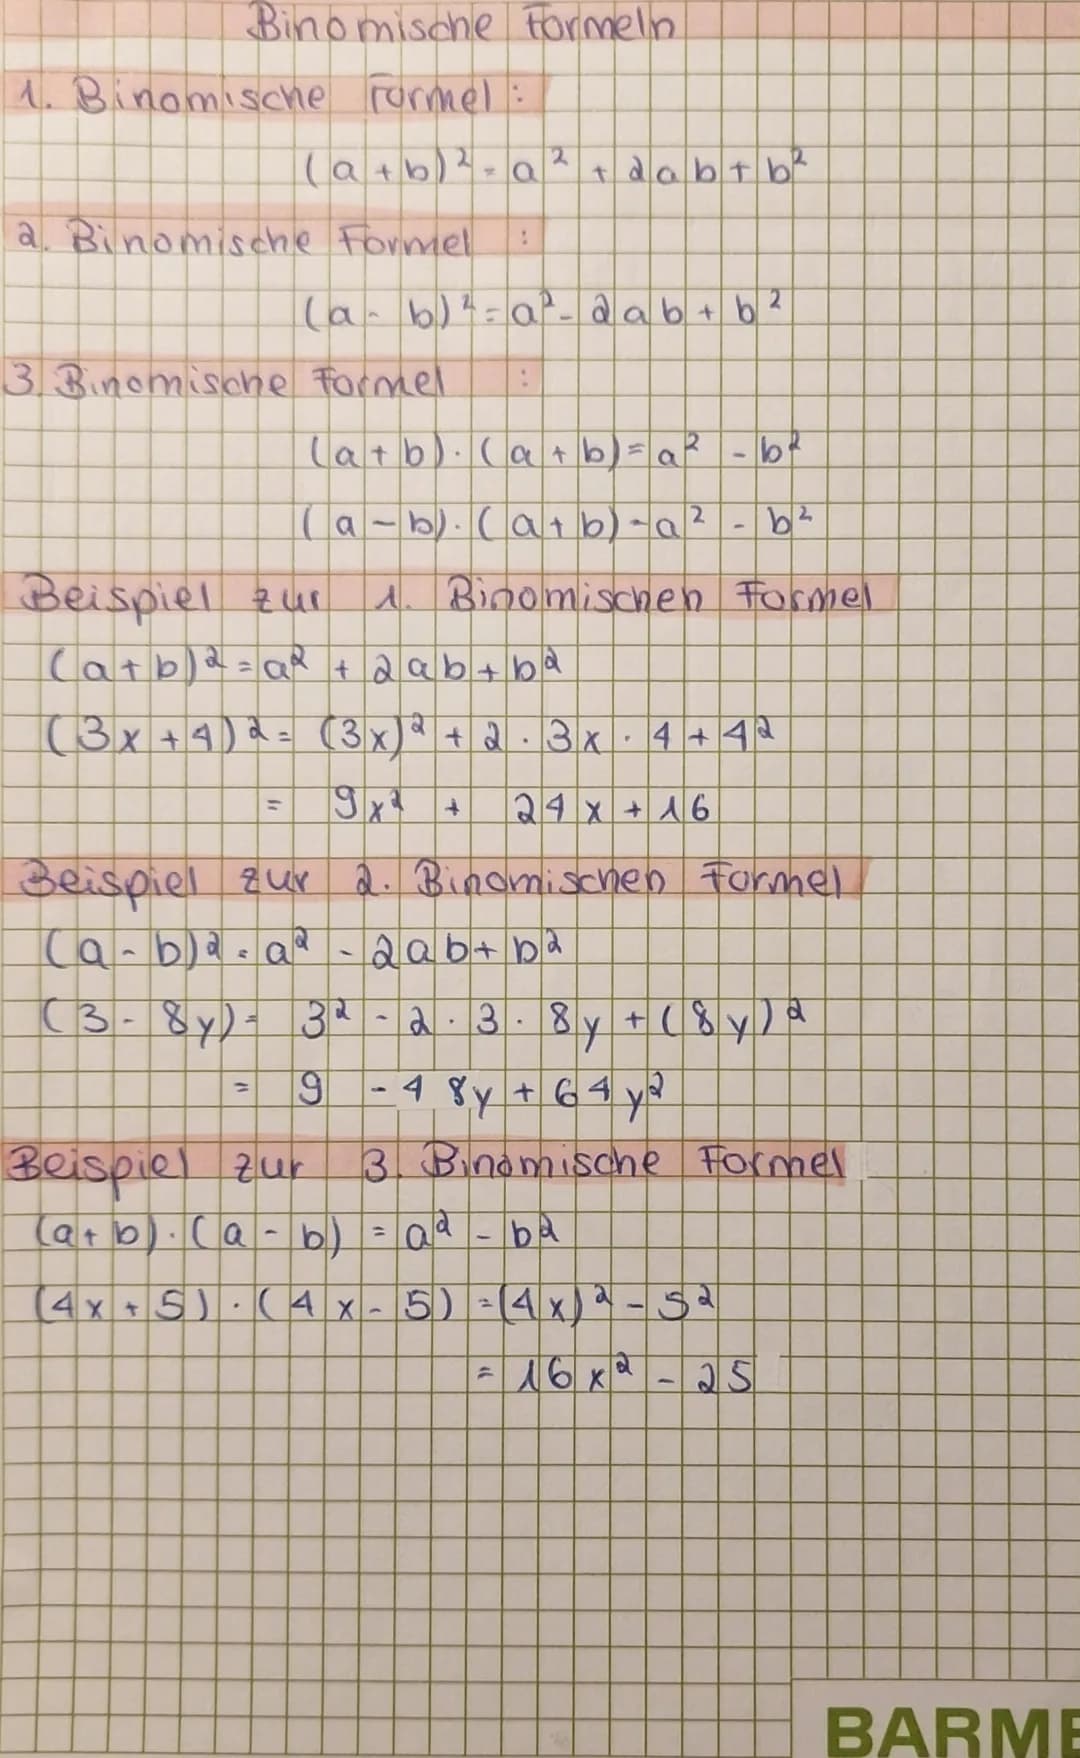 Binomische Formeln
1. Binomische Formel:
(a+b)² = a² + 2ab + b²
2. Binomische Formel :
(a - b)² = a² - 2ab + b²
3. Binomische Formel :
(a+b)·(a+b) = a² - b²
(a-b)·(a+b) = a² - b²
Beispiel zur 1. Binomischen Formel
(a+b)² = a² + 2ab + b²
(3x+4)² = (3x)² + 2 · 3x · 4 + 4²
= 9x² + 24x + 16
Beispiel zur 2. Binomischen Formel
(a-b)² = a² - 2ab + b²
(3-8y) = 3² - 2 · 3 · 8y + (8y)²
= 9 - 48y + 64y²
Beispiel zur 3. Binomische Formel
(a+b)·(a-b) = a² - b²
(4x+5)·(4x-5) = (4x)² - 5²
= 16x² - 25